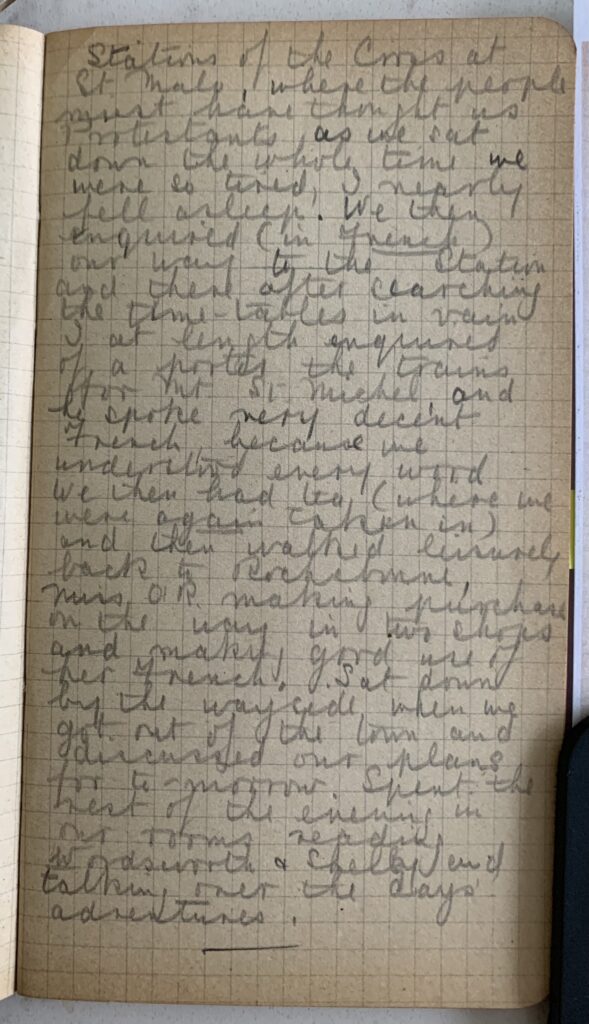 Stations of the Cross at
St Malo, where the people
must have thought us
Protestants, as we sat
down the whole time we
were so tired, I nearly
fell asleep. We then
enquired (in French)
our way to the Station
and there after searching
the time-tables in vain
I at length enquired
of a porter the trains
for Mt St Michel, and
he spoke very decent
French because we
understood every word
We then had tea (where we
were again taken in)
and then walked leisurely
back to Rochebonne,
O'R. making purchase
on the way in two shops
and making good use of
her French. Sat down
by the wayside when we
got out of the town and
discussed our plans
for to-morrow. Spent the
rest of the evening in
our rooms reading
Wordsworth & Shelly and
talking over the days
adventures.